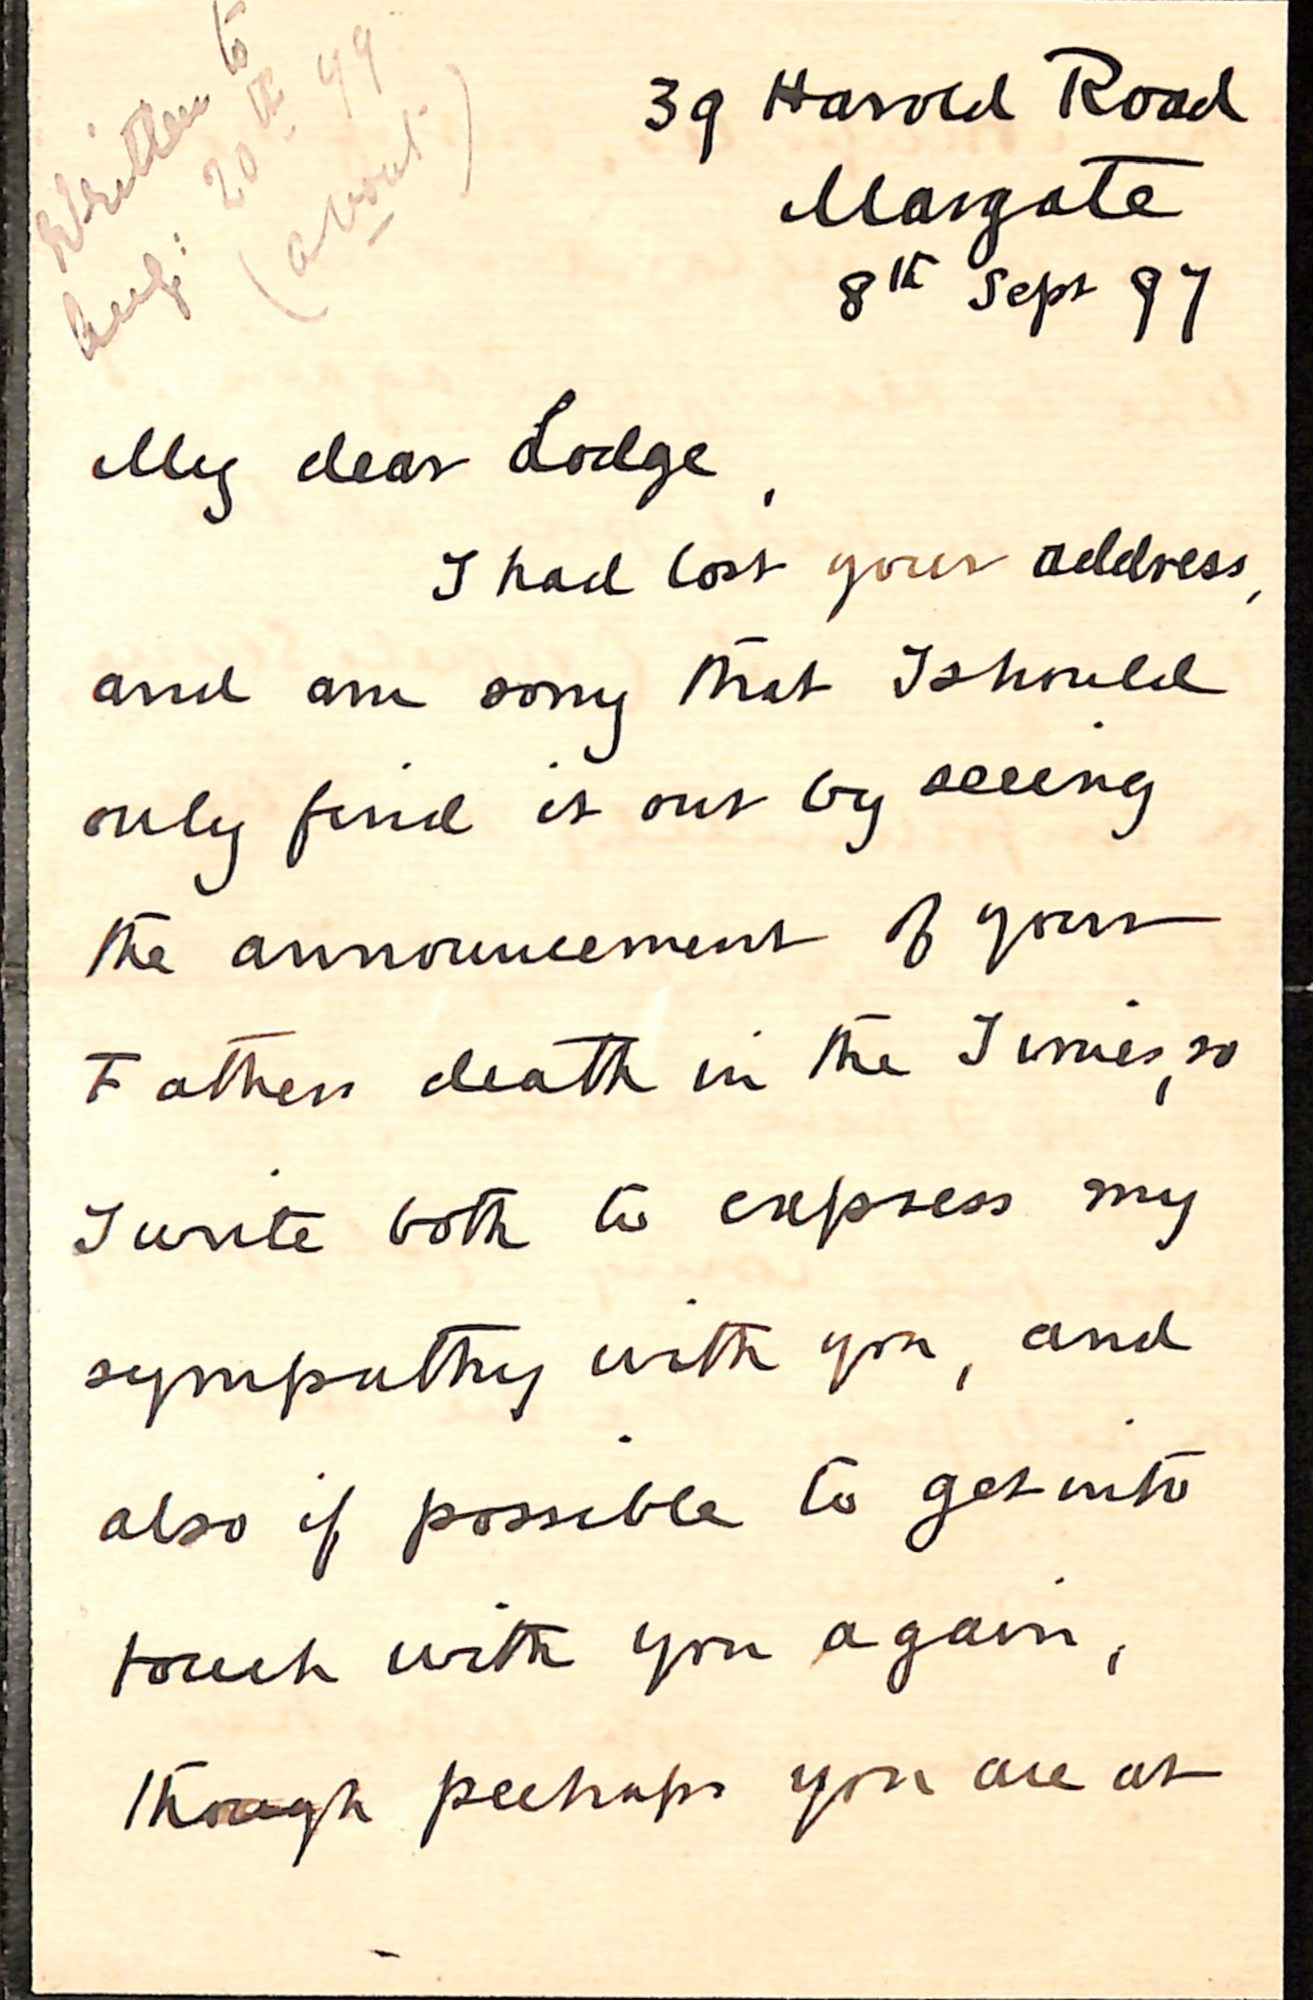 Written to
Aug: 20th 99
(about.)
39 Harold Road
Margate
8th Sept 97
My dear Lodge,
I had lost your address,
and am sorry that I should
only find it out by seeing
the announcement of your
Fathers death in the Times, so
I write both to express my
sympathy with you, and
also if possible to get into
touch with you again,
though perhaps you are at